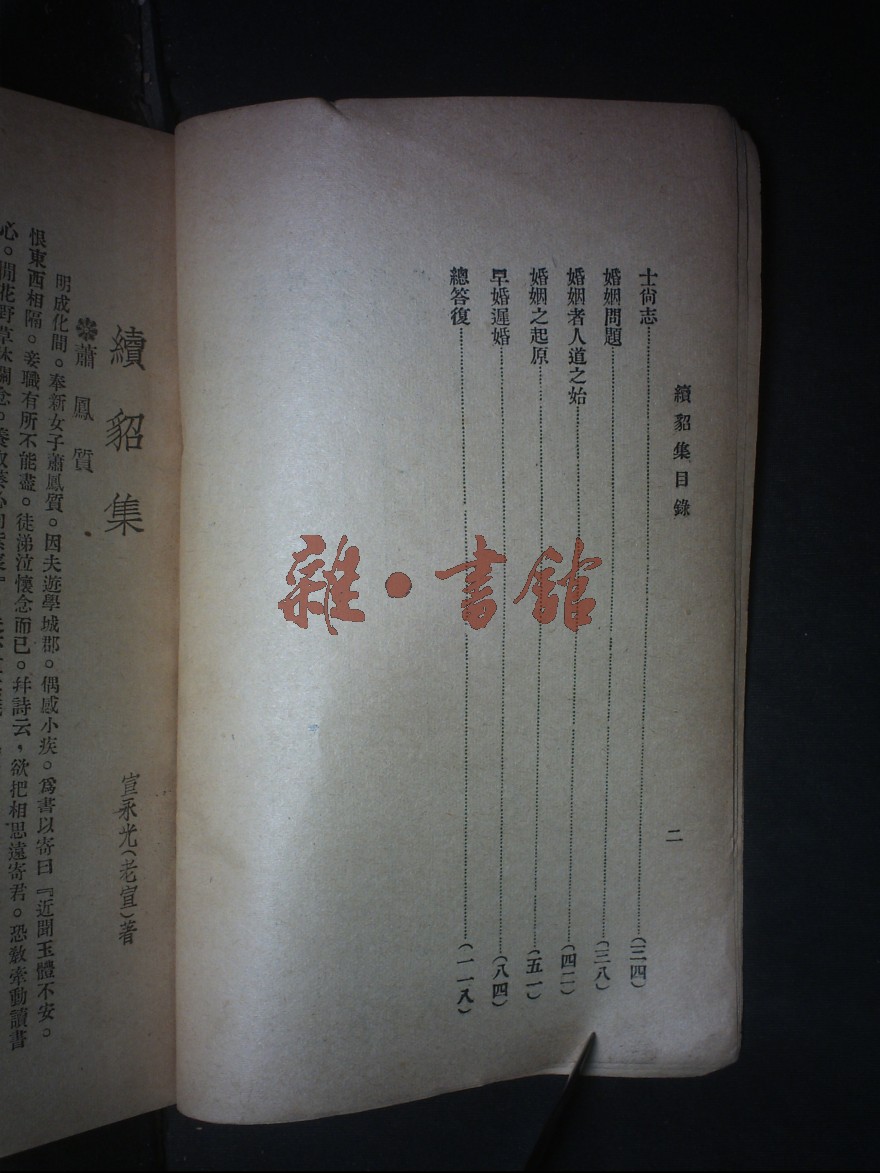 續貂集目錄
二
士尙志(三四)
婚姻問題(三八)
婚姻者人道之始(四二)
婚姻之起原(五一)
早婚遲婚(八四)
總答復(一一八)
雜·書館
續貂集
宣永光(老宣)著
蕭鳳質
明成化間。奉新女子蕭鳳質。因夫遊學城郡。偶感小疾。爲書以寄曰『近聞玉體不安。
恨東西相隔。妾職有所不能盡。徒涕泣懷念而已。幷詩云,欲把相思遠寄君。恐敎牽動讀書
心。閒花野草休關念。